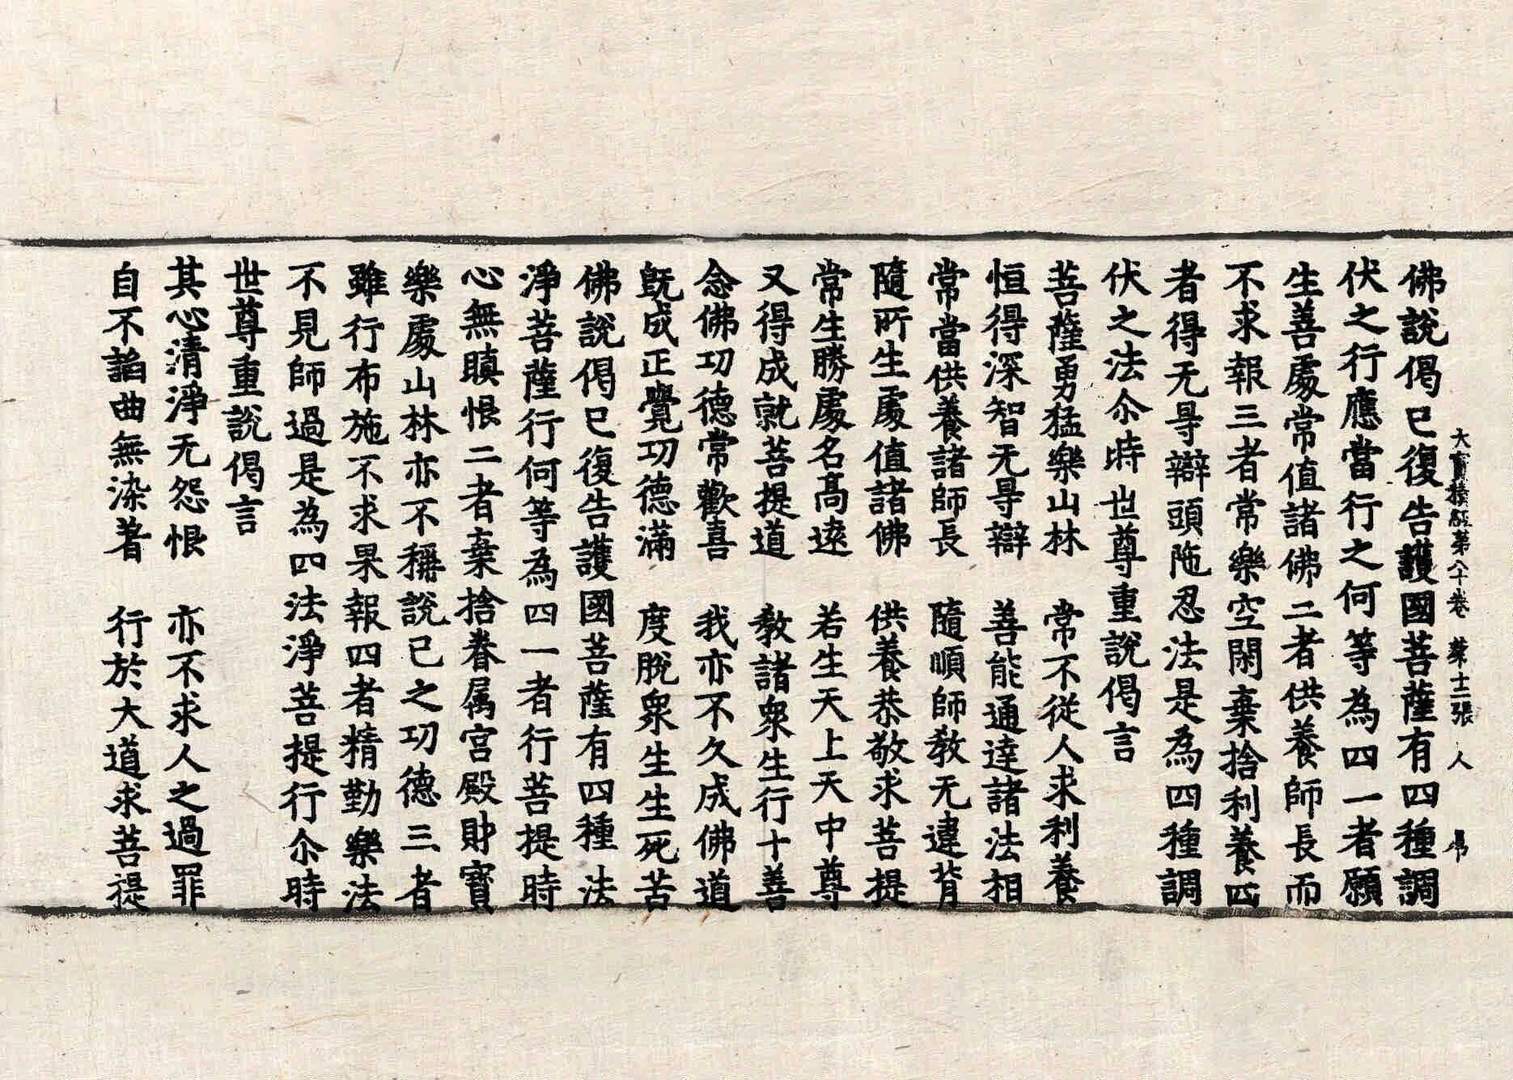 大寶積經第八十卷 第十二張 人 鳥
佛說偈已復告護國菩薩有四種調
伏之行應當行之何等為四一者願
生善處常值諸佛二者供養師長而
不求報三者常樂空閑棄捨利養四
者得无㝵辯頭陁忍法是為四種調
伏之法尒時世尊重說偈言
菩薩勇猛樂山林 常不從人求利養
恒得深智无㝵辯 善能通達諸法相
常當供養諸師長 隨順師教无違背
隨所生處值諸佛 供養恭敬求菩提
常生勝處名高遠 若生天上天中尊
又得成就菩提道 教諸眾生行十善
念佛功德常歡喜 我亦不久成佛道
既成正覺功德滿 度脫眾生生死苦
佛說偈已復告護國菩薩有四種法
淨菩薩行何等為四一者行菩提時
心無瞋恨二者棄捨眷属宮殿財寶
樂處山林亦不稱說已之功德三者
雖行布施不求果報四者精勤樂法
不見師過是為四法淨菩提行尒時
世尊重說偈言
其心清淨无怨恨 亦不求人之過罪
自不諂曲無染著 行於大道求菩提